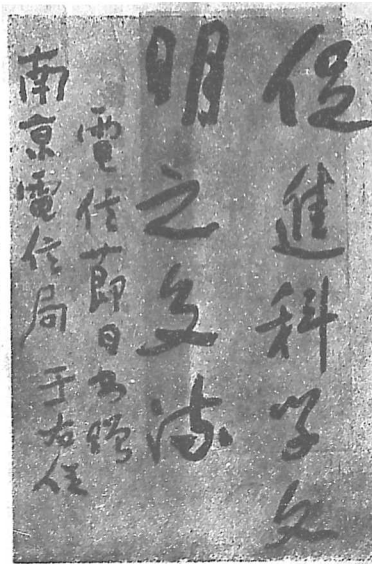 促進科学文
明之交流
電信節日书贈
南京電信局 于右任